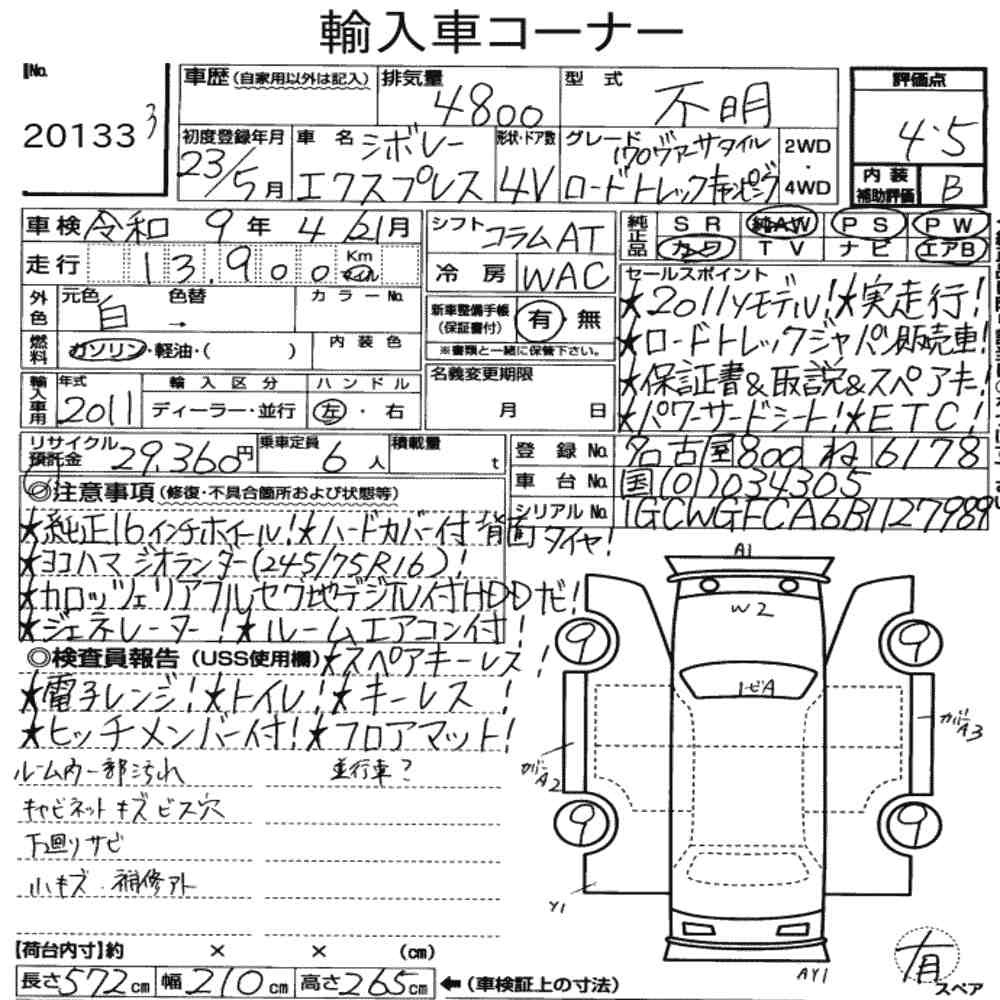 輸入車コーナー
No.
20133 3
車歴 (自家用以外は記入)
排気量 4800
型式 不明
評価点 4.5
初度登録年月 23/5月
車名 シボレー エクスプレス
形状・ドア数 4V
グレード 170ヴァーサタイル ロードトレックキャンピング
2WD・4WD
内装補助評価 B
車検 令和 9年 4/21月
シフト コラムAT
純正品 SR 純AW PS PW
カワ TV ナビ エアB
走行 13,900 Km マイル
冷房 WAC
セールスポイント
★2011yモデル!★実走行!
★ロードトレックジャパン販売車!
★保証書&取説&スペアキー!
★パワーサードシート!★ETC!
外色 元色 白 → 色替
カラーNo.
燃料 ガソリン・軽油・( )
内装色
新車整備手帳(保証書付) 有・無
※書類と一緒に保管下さい。
輸入車用 年式 2011
輸入区分 ディーラー・並行
ハンドル 左・右
名義変更期限 月 日
リサイクル預託金 29,360円
乗車定員 6人
積載量 t
登録No. 名古屋800 ね 6178
車台No. 国(01)034305
シリアルNo. 1GCWGFCA6B1127989
◎注意事項 (修復・不具合箇所および状態等)
★純正16インチホイール!★ハードカバー付背面タイヤ!
★ヨコハマ ジオランダー(245/75R16)!
★カロッツェリアフルセグ地デジTV付HDDナビ!
★ジェネレーター!★ルームエアコン付!
◎検査員報告 (USS使用欄)★スペアキーレス!
★電子レンジ!★トイレ!★キーレス!
★ヒッチメンバー付!★フロアマット!
ルーム内一部汚れ 並行車?
キャビネット キズ ビス穴
下廻りサビ
小キズ・補修アト
A1
W2
トビA
9
9
9
9
カバーA2
カバーA3
Y1
AY1
【荷台内寸】約 × × (cm)
長さ572cm 幅210cm 高さ265cm ←(車検証上の寸法)
有
スペア